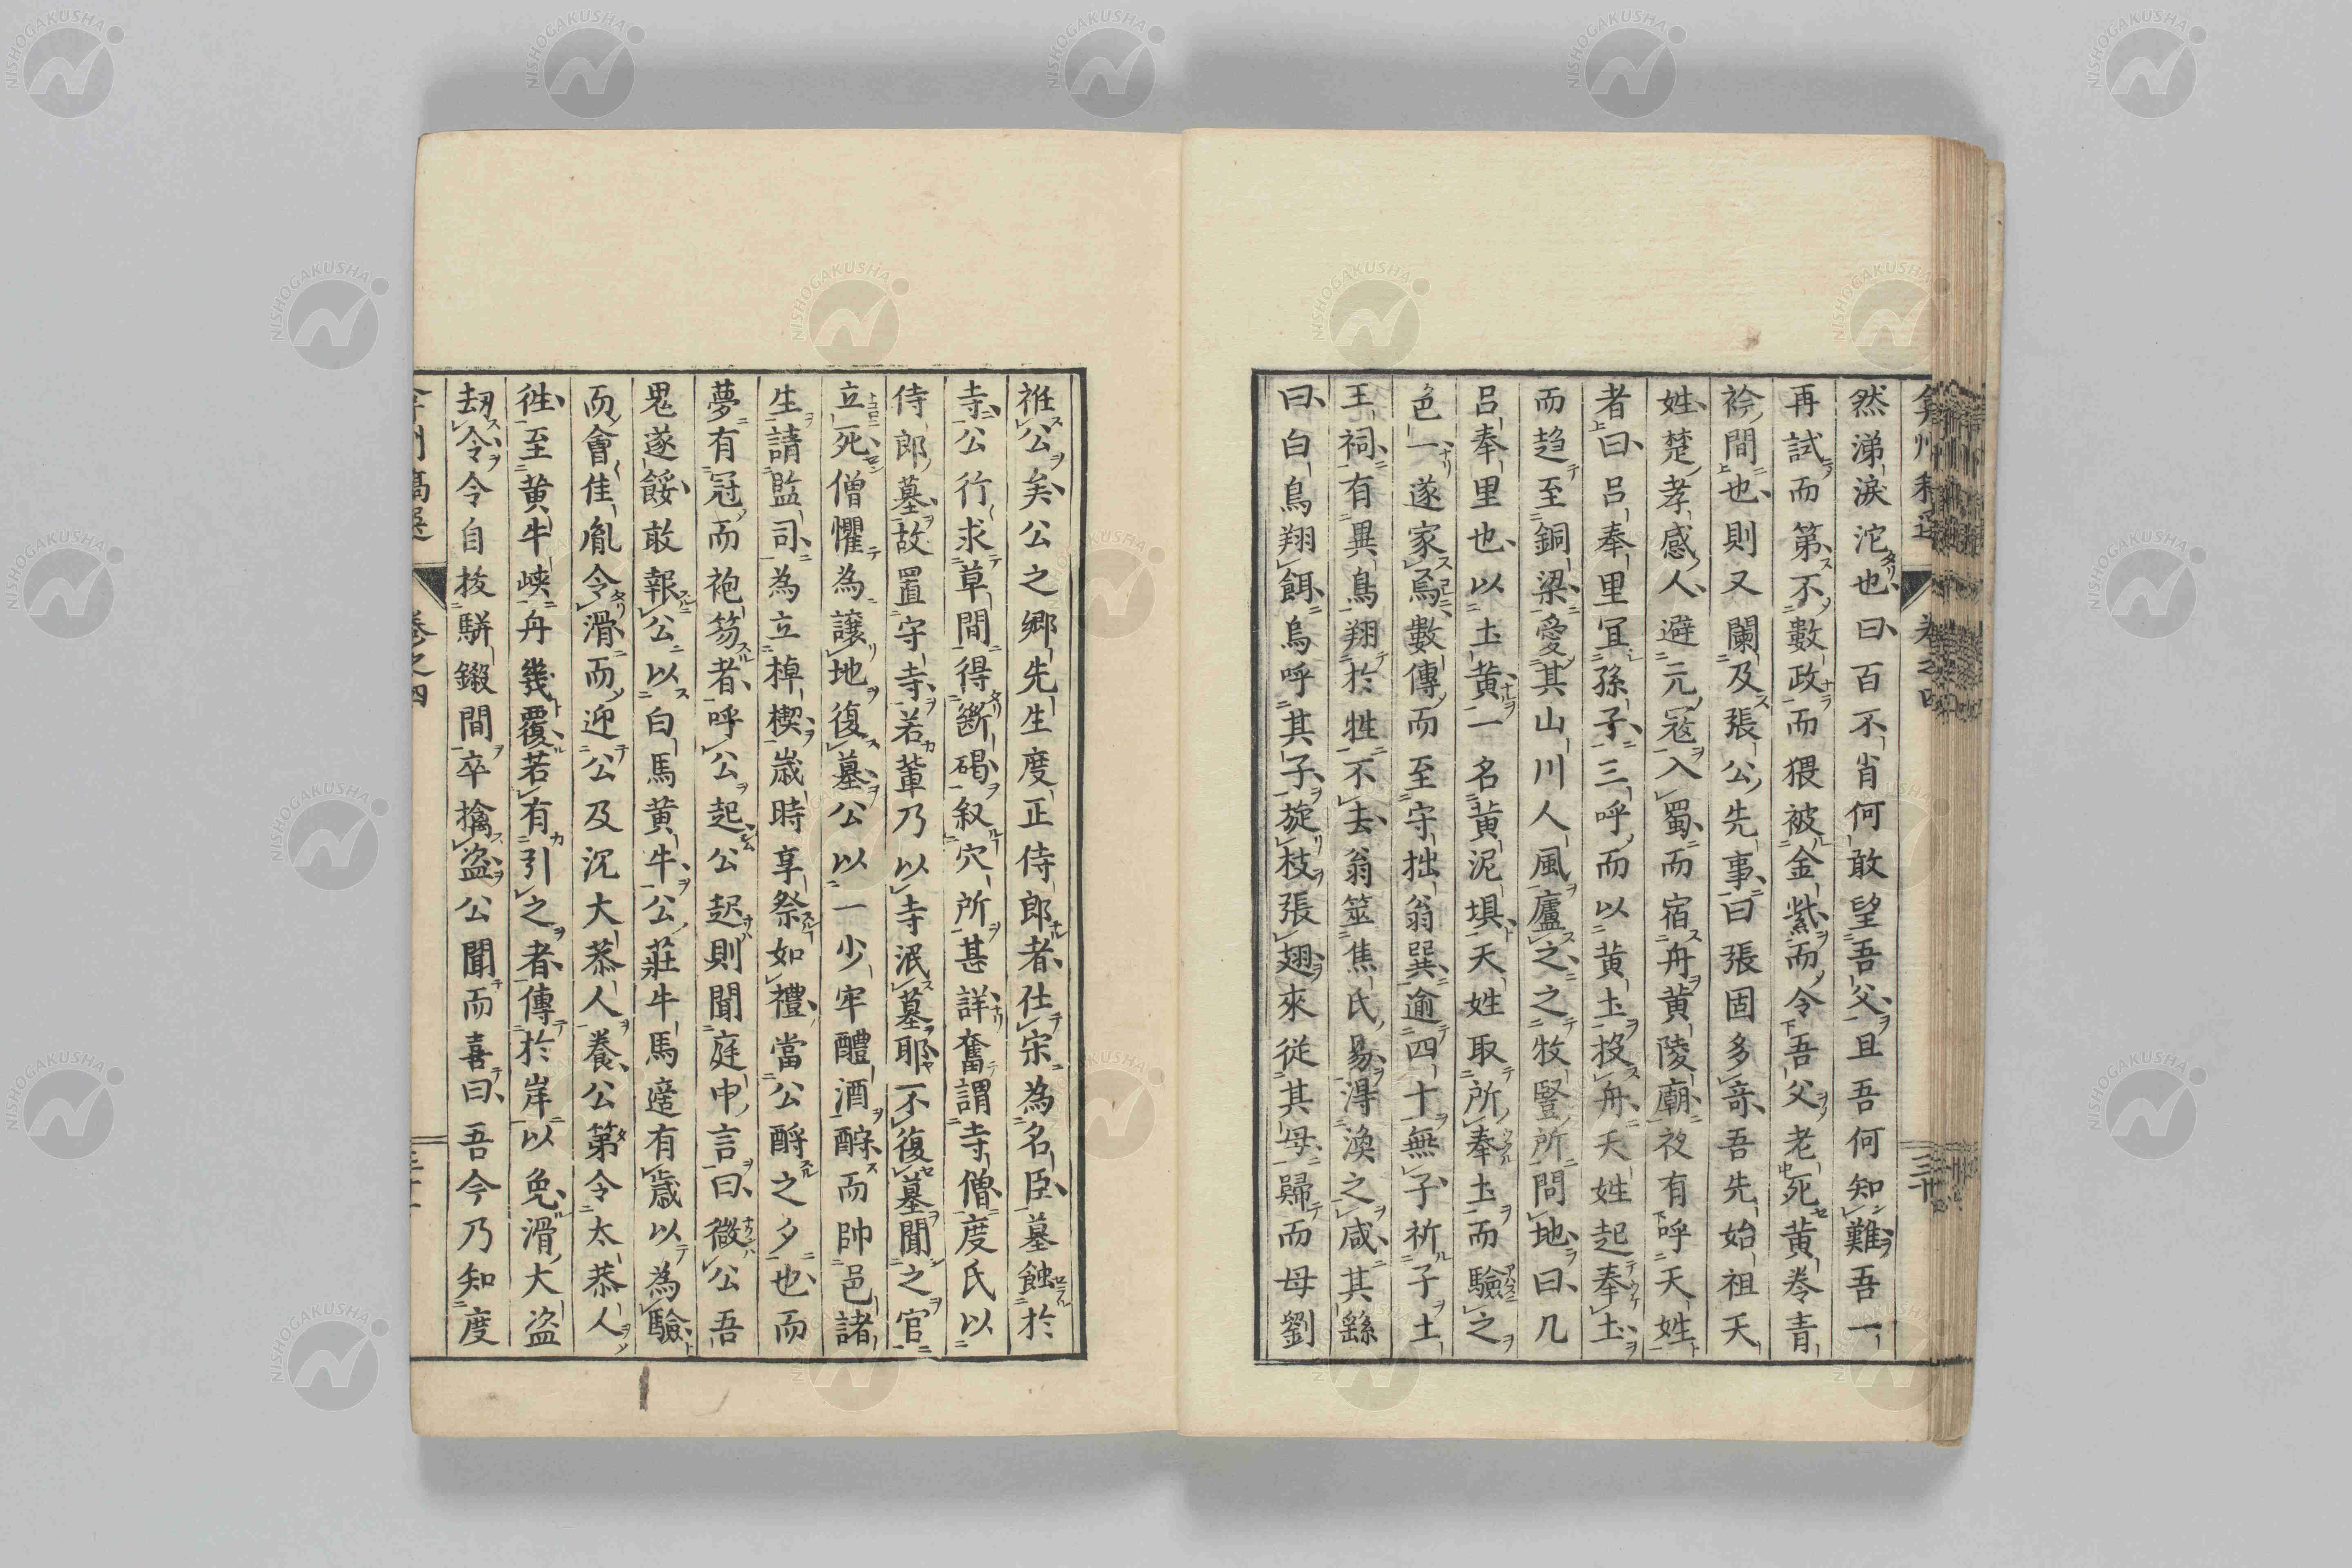 弇州稿選 卷之四
然涕淚沱也曰百不肖何敢望吾父且吾何知難吾一
再試而第不數政而猥被金紫而令吾父老死黄卷青
衿間也則又闌及張公先事曰張固多竒吾先始祖天
姓楚孝感人避元冦入蜀而宿舟黄陵廟夜有呼天姓
者曰吕奉里冝孫子三呼而以黄土投舟天姓起奉土
而趋至銅梁愛其山川人風廬之之牧豎所問地曰几
吕奉里也以土黄一名黄泥埧天姓取所奉土而驗之
色一遂家焉數傳而至守拙翁巽逾四十無子祈子土
王祠有異鳥翔於牲不去翁筮焦氏易得渙之咸其繇
曰白鳥翔餌烏呼其子旋枝張翅來從其母歸而母劉
袵公矣公之郷先生度正侍郎者仕宋為名臣墓蝕於
寺公行求草間得斷碣叙穴所甚詳奮謂寺僧度氏以
侍郎墓故置守寺若輩乃以寺泯墓耶不復墓聞之官
立死僧懼為讓地復墓公以一少牢醴酒酹而帥邑諸
生請監司為立棹楔歳時享祭如禮當公酹之夕也而
夢有冠而袍笏者呼公起公起則聞庭中言曰微公吾
鬼遂餒敢報公以白馬黄牛公莊牛馬蹇有歳以為驗
而會佳胤令滑而迎公及沉大恭人養公第令太恭人
徃至黄牛峡舟幾覆若有引之者傳於岸以免滑大盗
刼令令自拔駢鍛間卒擒盗公聞而喜曰吾今乃知度
卷之四